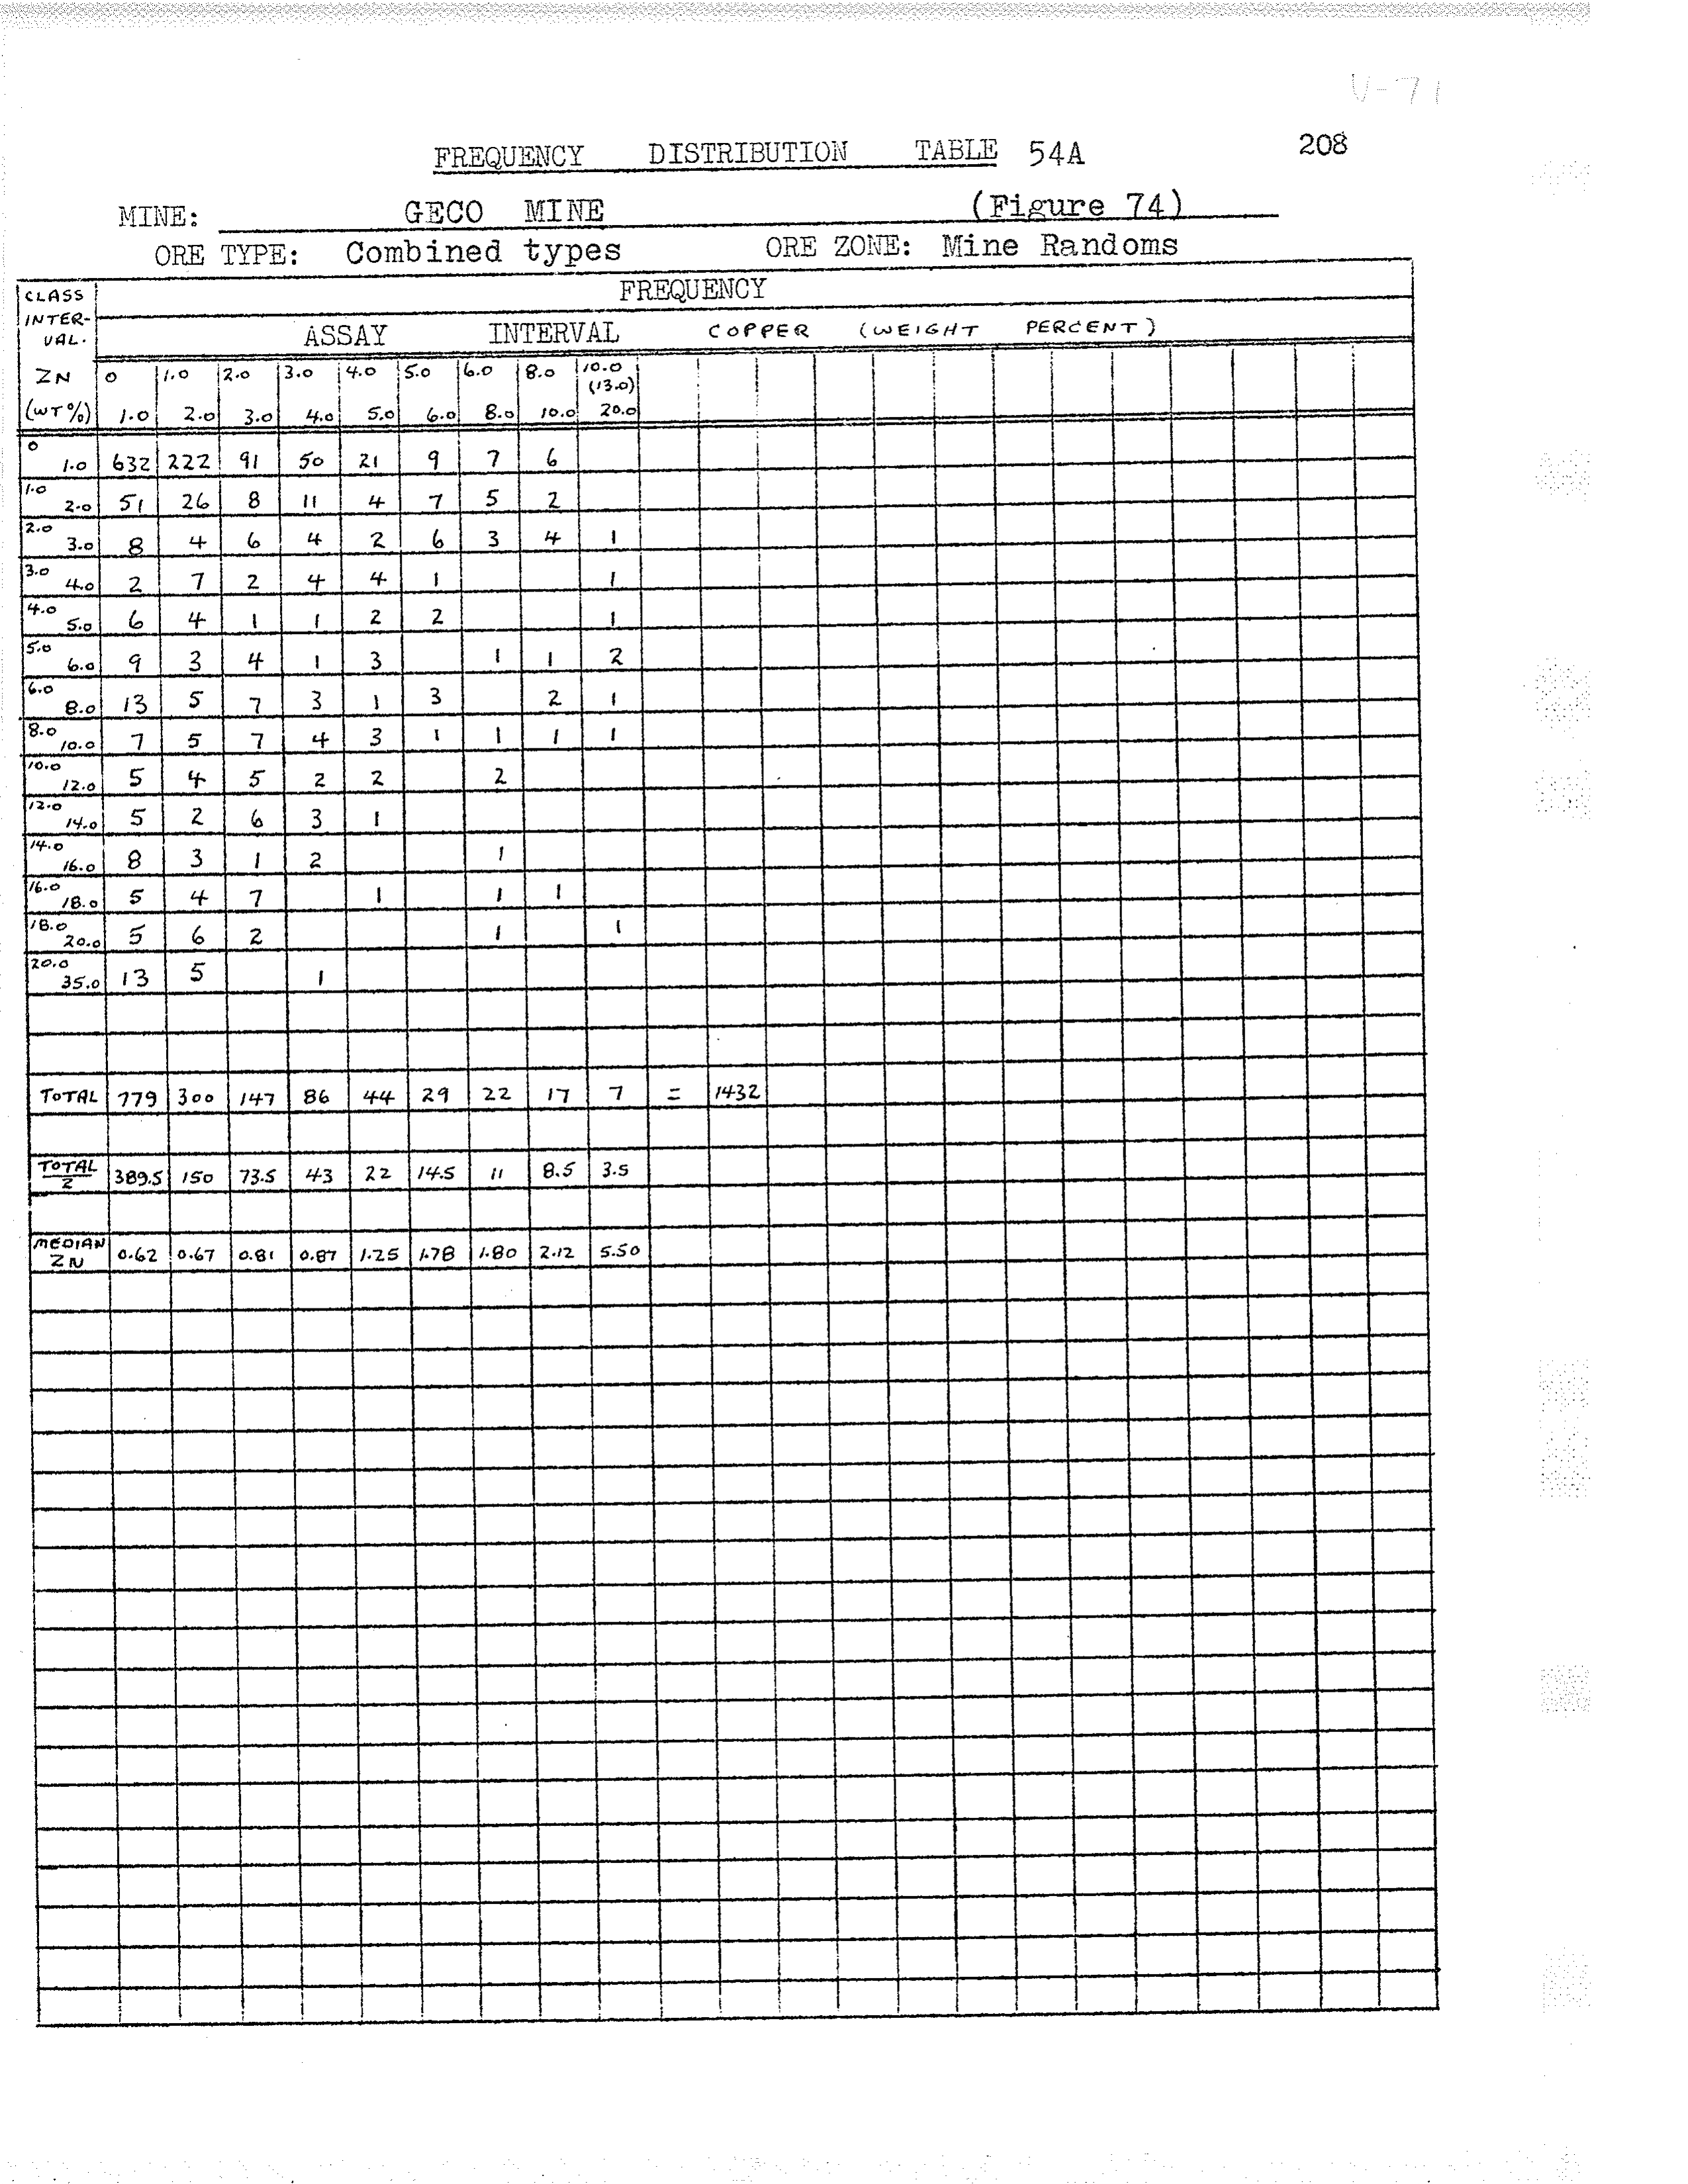 V-71
FREQUENCY DISTRIBUTION TABLE 54A
208
MINE: GECO MINE (Figure 74)
ORE TYPE: Combined types ORE ZONE: Mine Randoms
CLASS INTER-VAL. FREQUENCY
ASSAY INTERVAL COPPER (WEIGHT PERCENT)
ZN 0 1.0 2.0 3.0 4.0 5.0 6.0 8.0 10.0
(13.0)
(WT%) 1.0 2.0 3.0 4.0 5.0 6.0 8.0 10.0 20.0
0 1.0 632 222 91 50 21 9 7 6
1.0 2.0 51 26 8 11 4 7 5 2
2.0 3.0 8 4 6 4 2 6 3 4 1
3.0 4.0 2 7 2 4 4 1 1
4.0 5.0 6 4 1 1 2 2 1
5.0 6.0 9 3 4 1 3 1 1 2
6.0 8.0 13 5 7 3 1 3 2 1
8.0 10.0 7 5 7 4 3 1 1 1 1
10.0 12.0 5 4 5 2 2 2
12.0 14.0 5 2 6 3 1
14.0 16.0 8 3 1 2 1
16.0 18.0 5 4 7 1 1 1
18.0 20.0 5 6 2 1 1
20.0 35.0 13 5 1
TOTAL 779 300 147 86 44 29 22 17 7 = 1432
TOTAL
2 389.5 150 73.5 43 22 14.5 11 8.5 3.5
MEDIAN
ZN 0.62 0.67 0.81 0.87 1.25 1.78 1.80 2.12 5.50